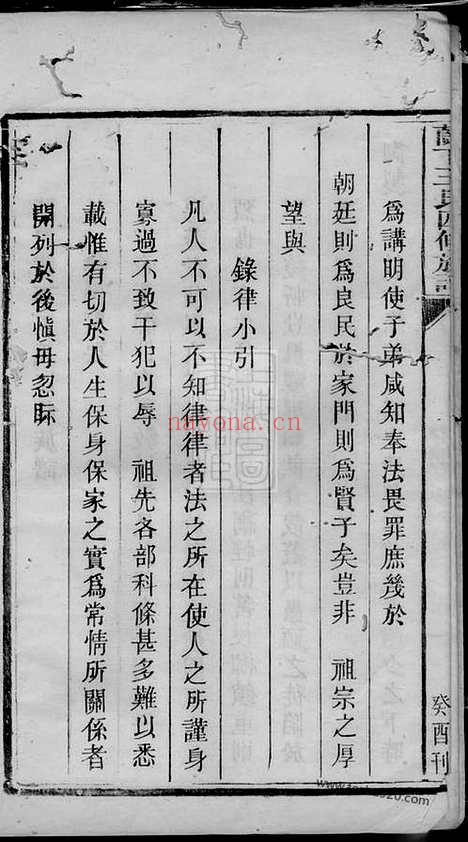 王氏四修族譜
為講明使子弟咸知奉法畏罪庶幾於
朝廷則為良民於家門則為賢子矣豈非 祖宗之厚
望與
錄律小引
凡人不可以不知律律者法之所在使人之所謹身
寡過不致干犯以辱 祖先各部科條甚多難以悉
載惟有切於人生保身保家之實為常情所關係者
開列於後慎毋忽眎
癸酉刊
nayona.cn